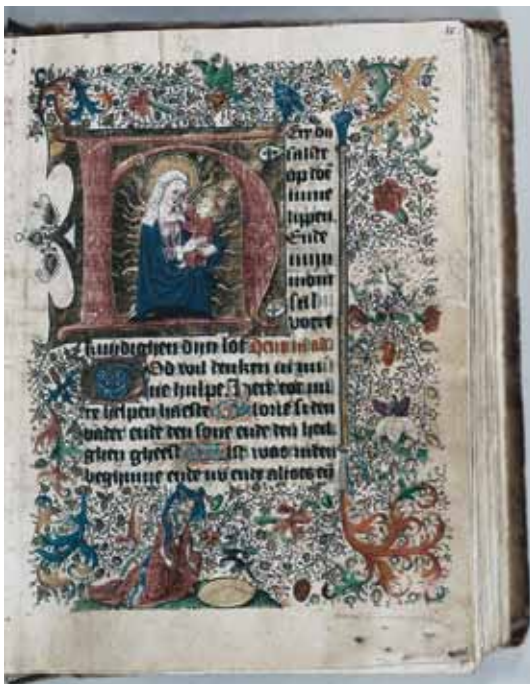 HEre du
salste
op doē
mine
lippen.
Ende
mijn
mont
sel
voert
kundighen dijn lof
God wil denken in mi
ne hulpe Here tot mi
te helpen haeste Glorie si den
vader ende den sone ende den heili
ghen gheest Alst was inden
beghinne ende nu ende altoes eñ